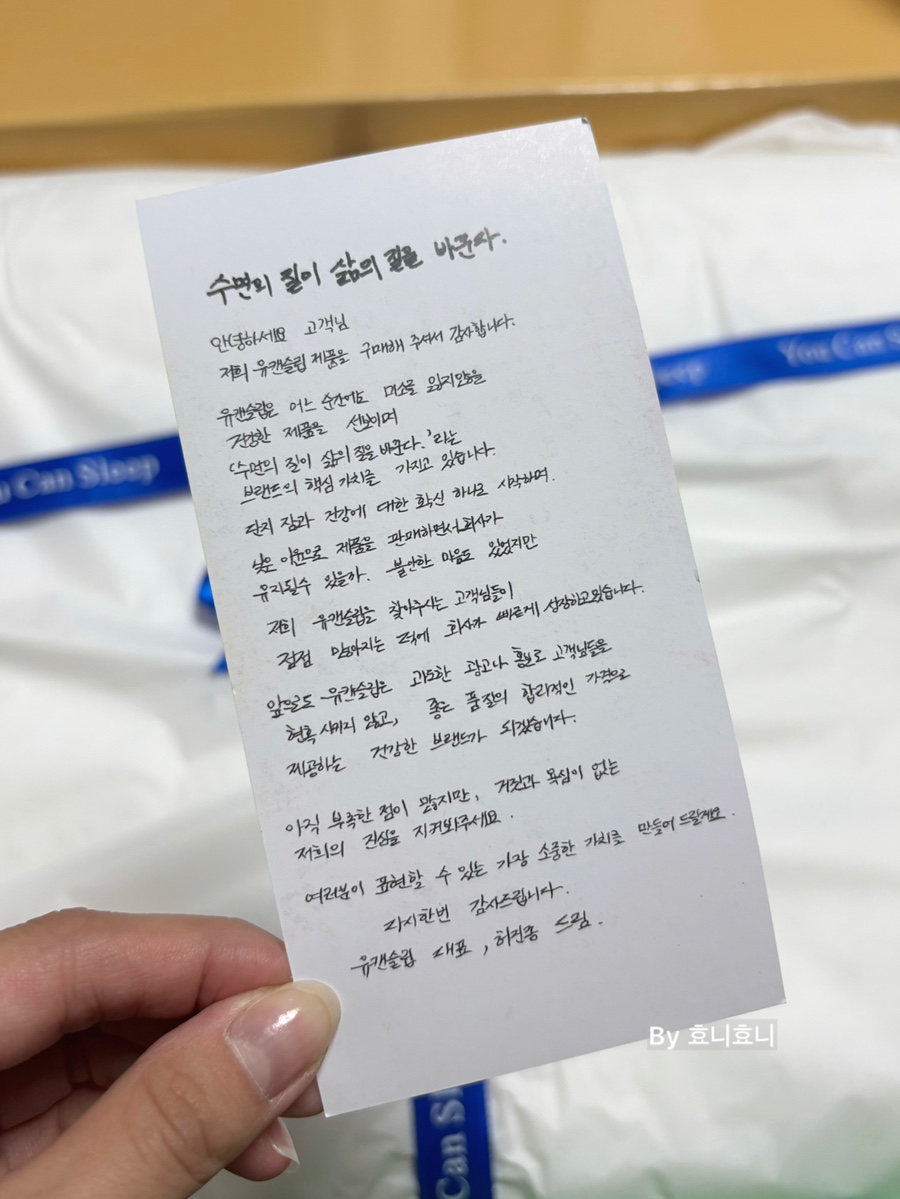 수면의 질이 삶의 질을 바꾼다.
안녕하세요 고객님
저희 유캔슬립 제품을 구매해 주셔서 감사합니다.
유캔슬립은 어느 순간에도 미소를 잃지않을
건강한 제품을 선보이며
'수면의 질이 삶의 질을 바꾼다.'라는
브랜드의 핵심 가치를 가지고 있습니다.
단지 잠과 건강에 대한 확신 하나로 시작하며.
낮은 이윤으로 제품을 판매하면서 회사가
유지될수 있을까. 불안한 마음도 있었지만
저희 유캔슬립을 찾아주시는 고객님들이
점점 많아지는 덕에 회사가 빠르게 성장하고있습니다.
앞으로도 유캔슬립은 과도한 광고나 홍보로 고객님들을
현혹 시키지 않고, 좋은 품질의 합리적인 가격으로
제공하는 건강한 브랜드가 되겠습니다.
아직 부족한 점이 많지만, 거짓과 욕심이 없는
저희의 진심을 지켜봐주세요.
여러분이 표현할 수 있는 가장 소중한 가치를 만들어 드릴게요.
다시한번 감사드립니다.
유캔슬립 대표, 허진종 드림.
You Can Sleep
u Can Sleep
eep
Can Sl
By 효니효니